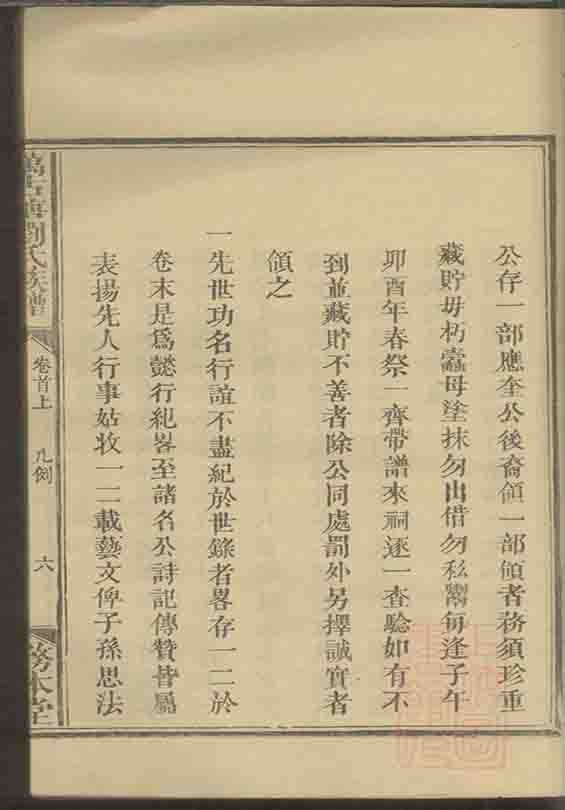 公存一部應奎公後裔領一部領者務須珍重
藏貯毋朽蠹母塗抹勿出借勿私鬻每逢子午
卯酉年春祭一齊帶譜來祠逐一查驗如有不
到並藏貯不善者除公同處罰外另擇誠實者
領之
一先世功名行誼不盡紀於世錄者畧存一二於
卷末是爲懿行紀畧至諸名公詩記傳贊皆屬
表揚先人行事姑收一二載藝文俾子孫思法
劉氏族譜
卷首上
凡例
六
務本堂